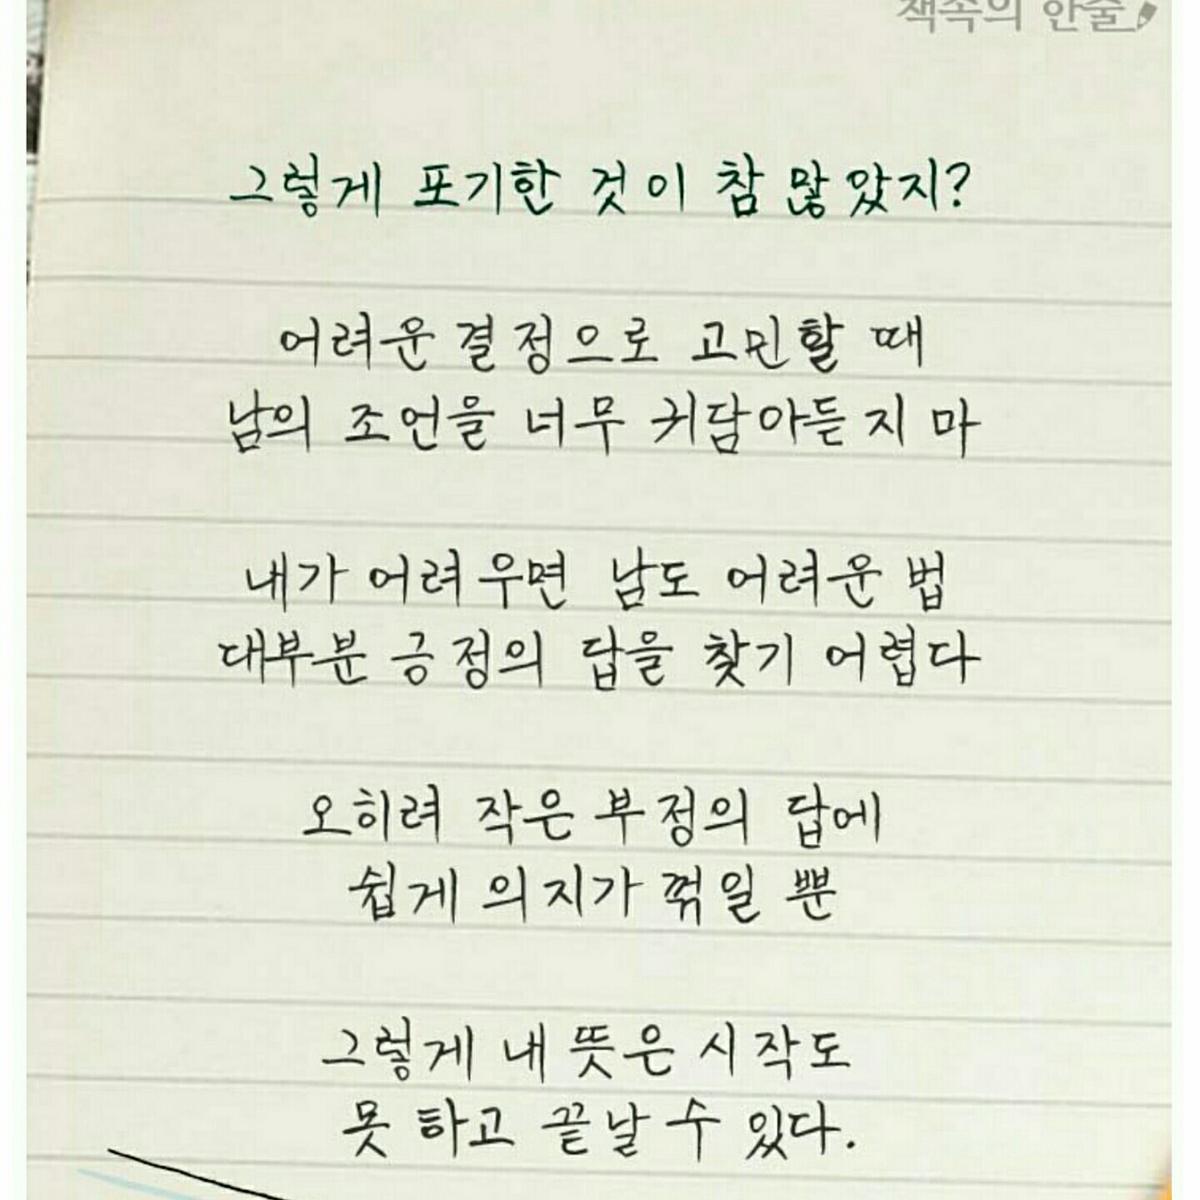 책속의 한줄
그렇게 포기한 것이 참 많았지?
어려운 결정으로 고민할 때
남의 조언을 너무 귀담아듣지 마
내가 어려우면 남도 어려운 법
대부분 긍정의 답을 찾기 어렵다
오히려 작은 부정의 답에
쉽게 의지가 꺾일 뿐
그렇게 내 뜻은 시작도
못 하고 끝날 수 있다.